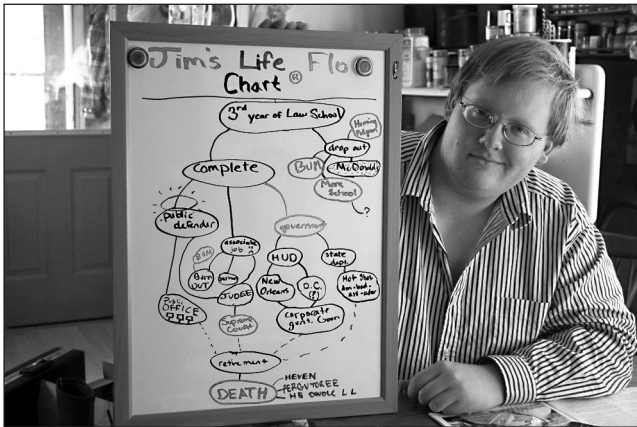 Jim's Life Flo
Chart ®
3rd year of Law School
Homing
Pidgeon
drop out
BUM
McDonalds
More
School
?
complete
public
defender
government
associate
job
BUM
BURN
OUT
partner
JUDGE
HUD
state
dept.
New
Orleans
D.C.
(?)
Hot Shot
Am-bad-
Ass-ador
Public
OFFICE
Supreme
Court
corporate
gent. Goon
retirement
DEATH
HEVEN
PERGUTOREE